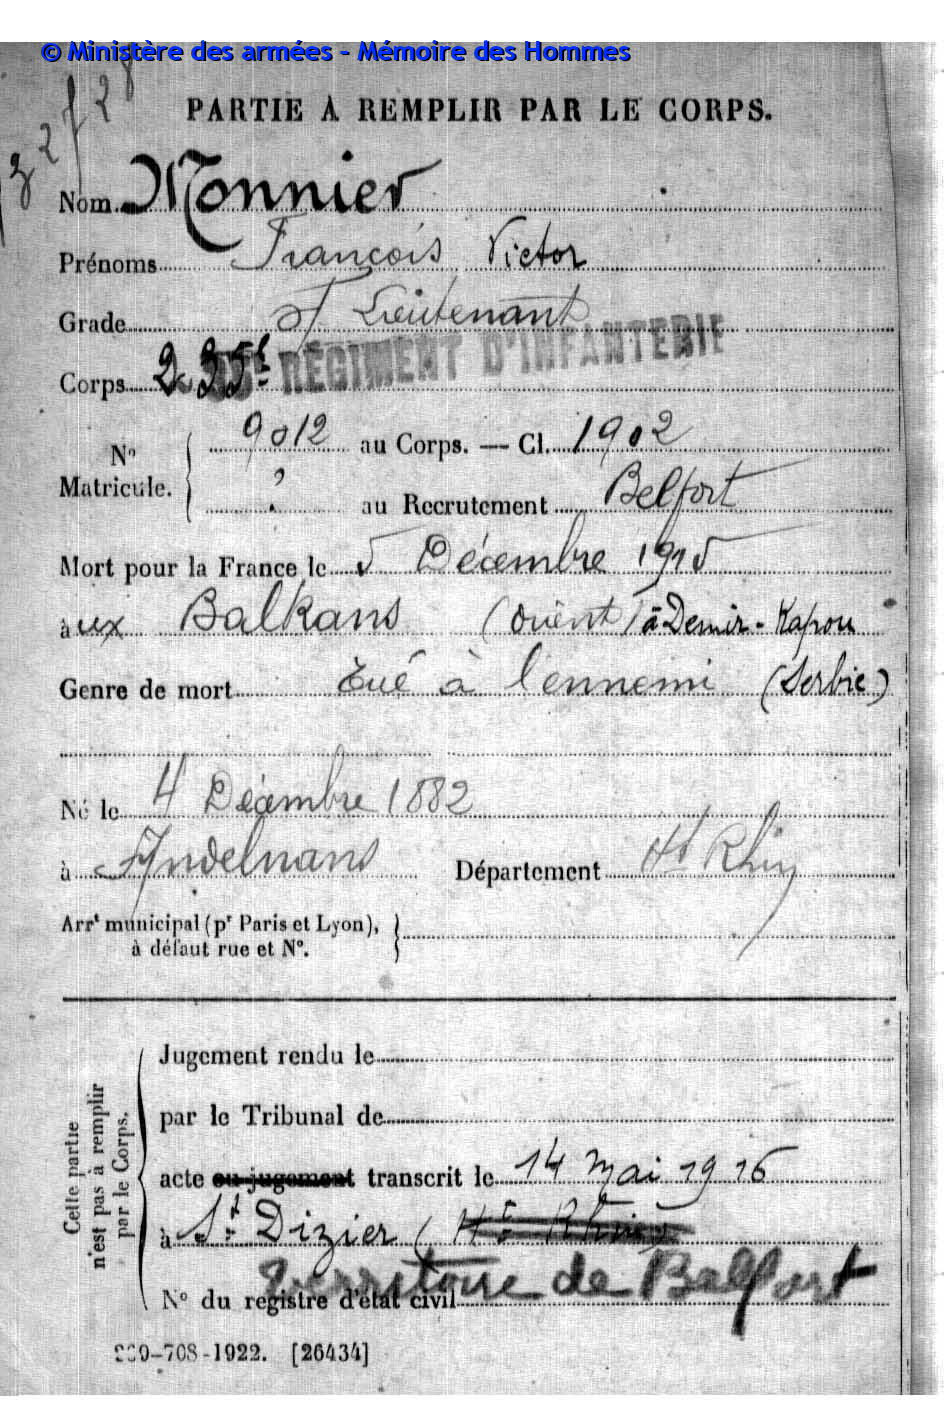 © Ministère des armées - Mémoire des Hommes
32728
PARTIE À REMPLIR PAR LE CORPS.
Nom Monnier
Prénoms François Victor
Grade St Lieutenant
Corps 235e RÉGIMENT D'INFANTERIE
No Matricule. { 9012 au Corps. — Cl. 1902
? au Recrutement Belfort
Mort pour la France le 5 Décembre 1915
à ux Balkans (Orient) à Demir-Kapou
Genre de mort Tué à l'ennemi (Serbie)
Né le 4 Décembre 1882
à Andelnans Département Ht Rhin
Arrt municipal (pr Paris et Lyon), }
à défaut rue et No.
Cette partie n'est pas à remplir par le Corps.
Jugement rendu le
par le Tribunal de
acte ou jugement transcrit le 14 mai 1916
à St Dizier (Ht Rhin)
Territoire de Belfort
No du registre d'état civil
-708-1922. [26434]